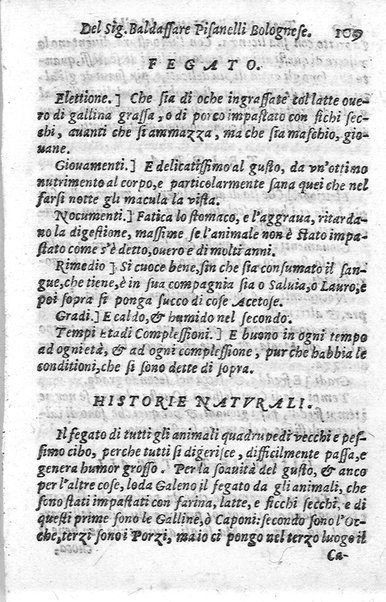 Del Sig. Baldassare Pisanelli Bolognese. 109
FEGATO.
Elettione.] Che sia di oche ingrassate col latte oue-
ro di gallina grassa, o di porco impastato con fichi sec-
chi, auanti che si ammazza, ma che sia maschio, gio-
uane.
Giouamenti.] E delicatissimo al gusto, da vn'ottimo
nutrimento al corpo, e particolarmente sana quei che nel
farsi notte gli macula la vista.
Nocumenti.] Fatica lo stomaco, e l'aggraua, ritarda-
no la digestione, massime se l'animale non è stato impa-
stato come s'è detto, ouero e di molti anni.
Rimedio] Si cuoce bene, sin che sia consumato il san-
gue, che tiene, è in sua compagnia sia o Saluia, o Lauro, e
poi sopra si ponga succo di cose Acetose.
Gradi.] E caldo, & humido nel secondo.
Tempi Età di Complessioni.] E buono in ogni tempo
ad ogni età, & ad ogni complessione, pur che habbia le
conditioni, che si sono dette di sopra.
HISTORIE NATVRALI.
Il fegato di tutti gli animali quadrupedi vecchi e pes-
simo cibo, perche tutti si digerisce, difficilmente passa, e
genera humor grosso. Per la soauità del gusto, & anco
per l'altre cose, loda Galeno il fegato da gli animali, che
sono stati impastati con farina, latte, e ficchi secchi, e di
questi prime sono le Galline, ò Caponi: secondo sono l'O-
che, terzi sono i Porzi, ma io ci pongo nel terzo luogo il
Ca-